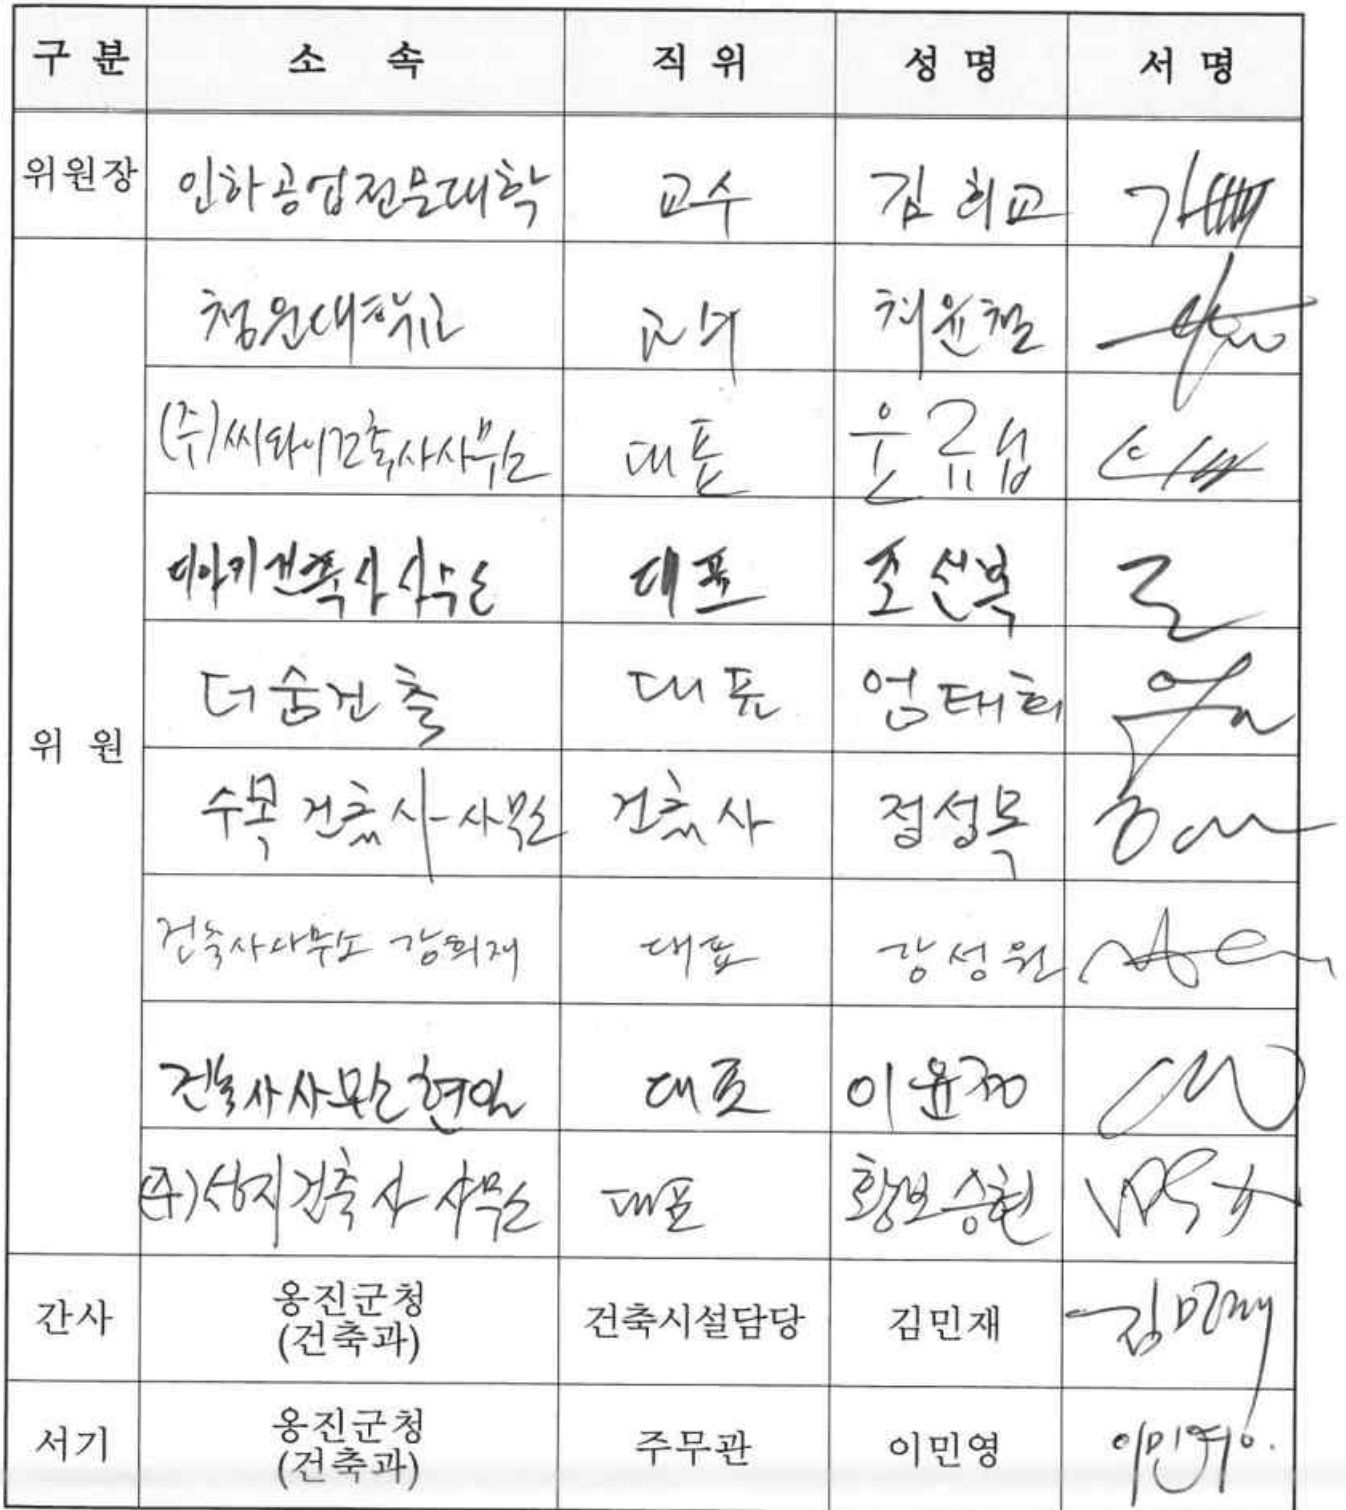 구 분 소 속 직 위 성 명 서 명
위원장 인하공업전문대학 교수 김희교
청운대학교 교수 최윤철
(주)씨와이건축사사무소 대표 윤규섭
디아키건축사사무소 대표 조선북
위 원
더숨건축 대표 엄태희
수목건축사사무소 건축사 정성목
건축사사무소 강희재 대표 강성원
건축사사무소 현일 대표 이윤정
(주)성지건축사사무소 대표 황보승현
간사 옹진군청 건축시설담당 김민재 김민재
(건축과)
서기 옹진군청 주무관 이민영 이민영
(건축과)